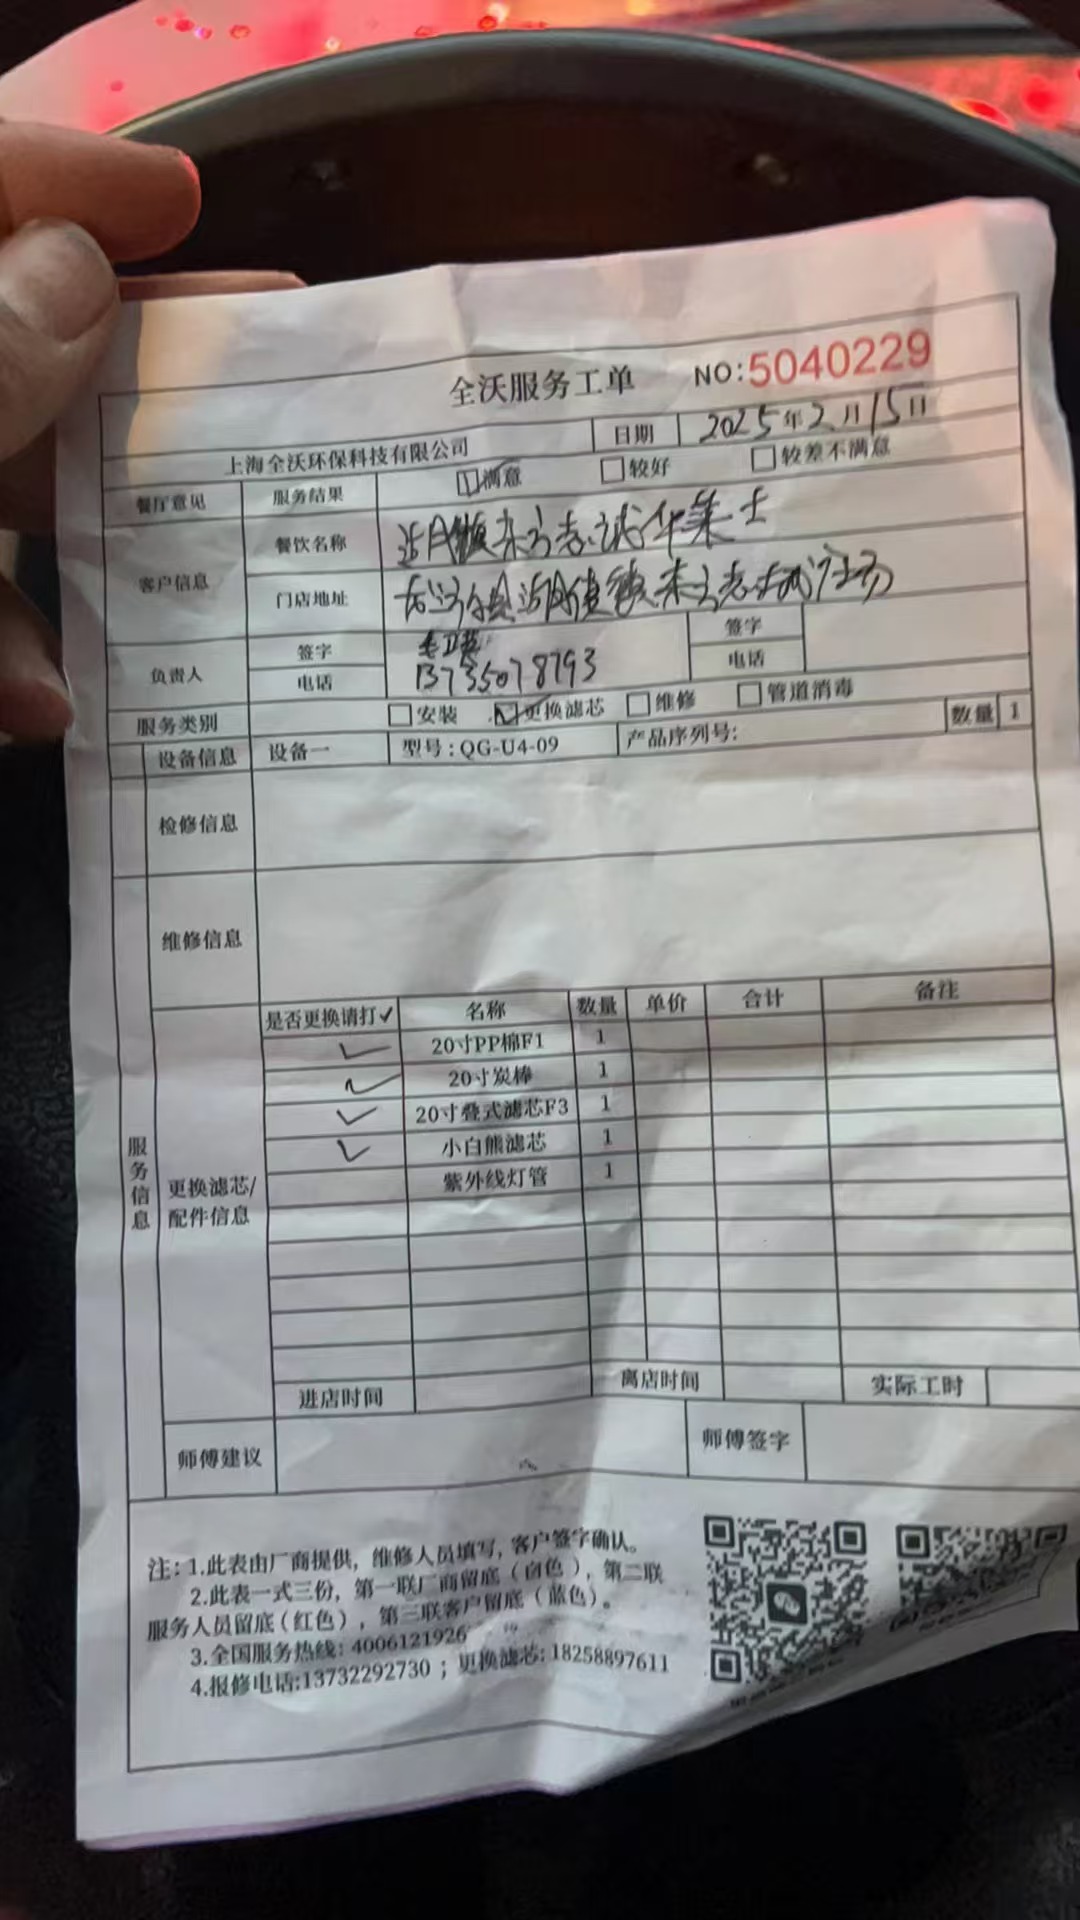 全沃服务工单 NO:5040229
上海全沃环保科技有限公司 日期 2025年2月15日
餐厅意见 服务结果 满意 较好 较差不满意
客户信息 餐饮名称 华莱士
门店地址
负责人 签字 签字
电话 13735078793 电话
服务类别 安装 更换滤芯 维修 管道消毒
设备信息 设备一 型号:QG-U4-09 产品序列号: 数量 1
检修信息
维修信息
是否更换请打✓ 名称 数量 单价 合计 备注
20寸PP棉F1 1
20寸炭棒 1
20寸叠式滤芯F3 1
小白熊滤芯 1
紫外线灯管 1
服务信息
更换滤芯/
配件信息
进店时间 离店时间 实际工时
师傅建议 师傅签字
注:1.此表由厂商提供，维修人员填写，客户签字确认。
2.此表一式三份，第一联厂商留底（白色），第二联
服务人员留底（红色），第三联客户留底（蓝色）。
3.全国服务热线: 4006121926
4.报修电话:13732292730；更换滤芯:18258897611